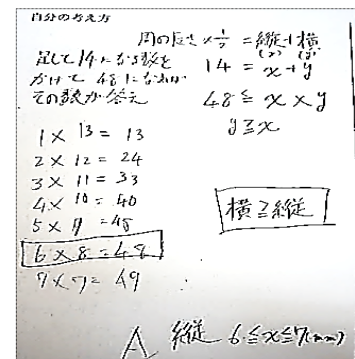 自分の考え方
周の長さ × 1/2 = 縦 + 横
(x) (y)
足して14になる数を
かけて 48になれば
その数が答え
14 = x + y
48 ≦ x × y
y ≧ x
1 × 13 = 13
2 × 12 = 24
3 × 11 = 33
4 × 10 = 40
5 × 9 = 45
6 × 8 = 48
7 × 7 = 49
横 ≧ 縦
A 縦 6 ≦ x ≦ 7